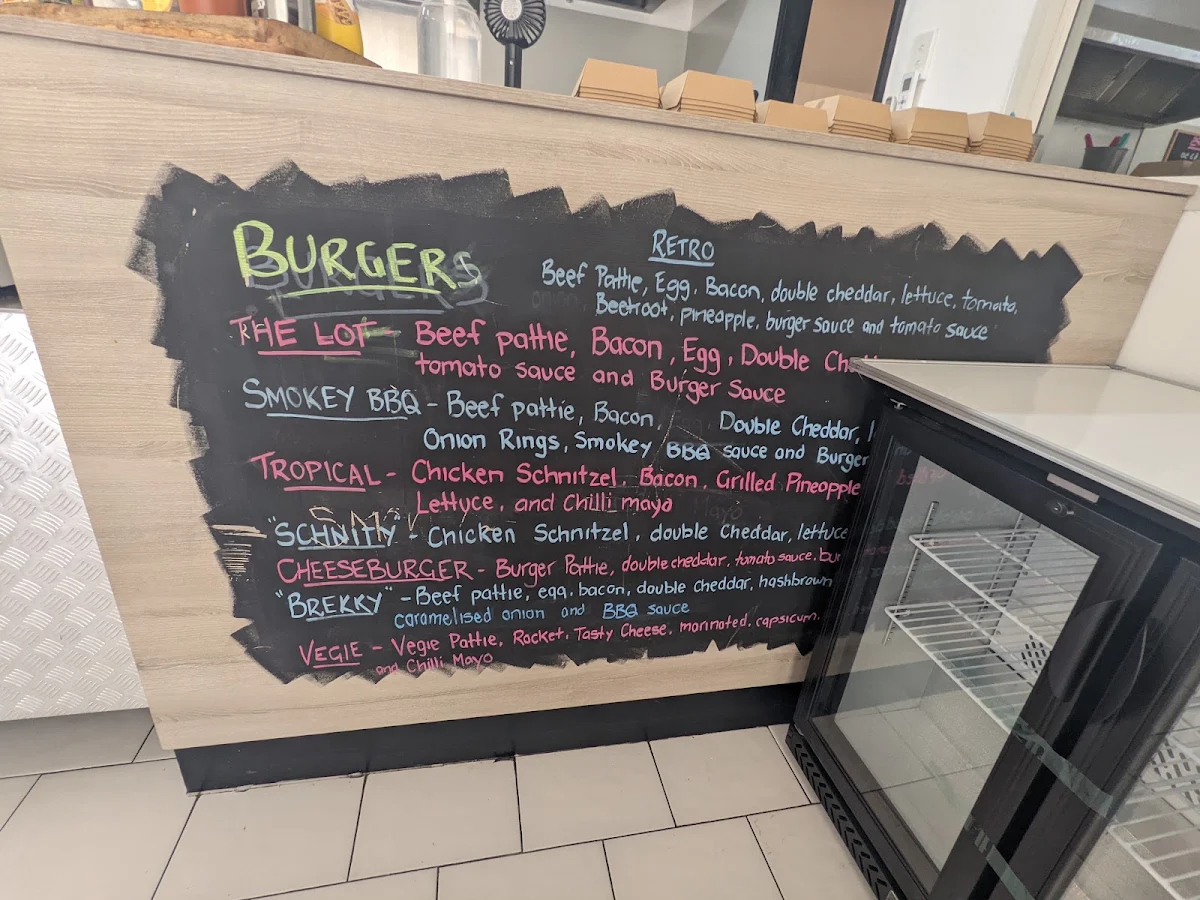 BURGERS
RETRO
Beef Pattie, Egg, Bacon, double cheddar, lettuce, tomato,
Beetroot, pineapple, burger sauce and tomato sauce
THE LOT - Beef pattie, Bacon, Egg, Double
tomato sauce and Burger Sauce
SMOKEY BBQ - Beef pattie, Bacon, Double Cheddar,
Onion Rings, Smokey BBQ sauce and Burger
TROPICAL - Chicken Schnitzel, Bacon, Grilled Pineapple
Lettuce, and Chilli mayo
"SCHNITTY" - Chicken Schnitzel, double Cheddar, lettuce
CHEESEBURGER - Burger Pattie, double cheddar, tomato sauce, bur
"BREKKY" - Beef pattie, egg, bacon, double cheddar, hashbrown
caramelised onion and BBQ sauce
VEGIE - Vegie Pattie, Rocket, Tasty Cheese, marinated, capsicum,
and Chilli Mayo